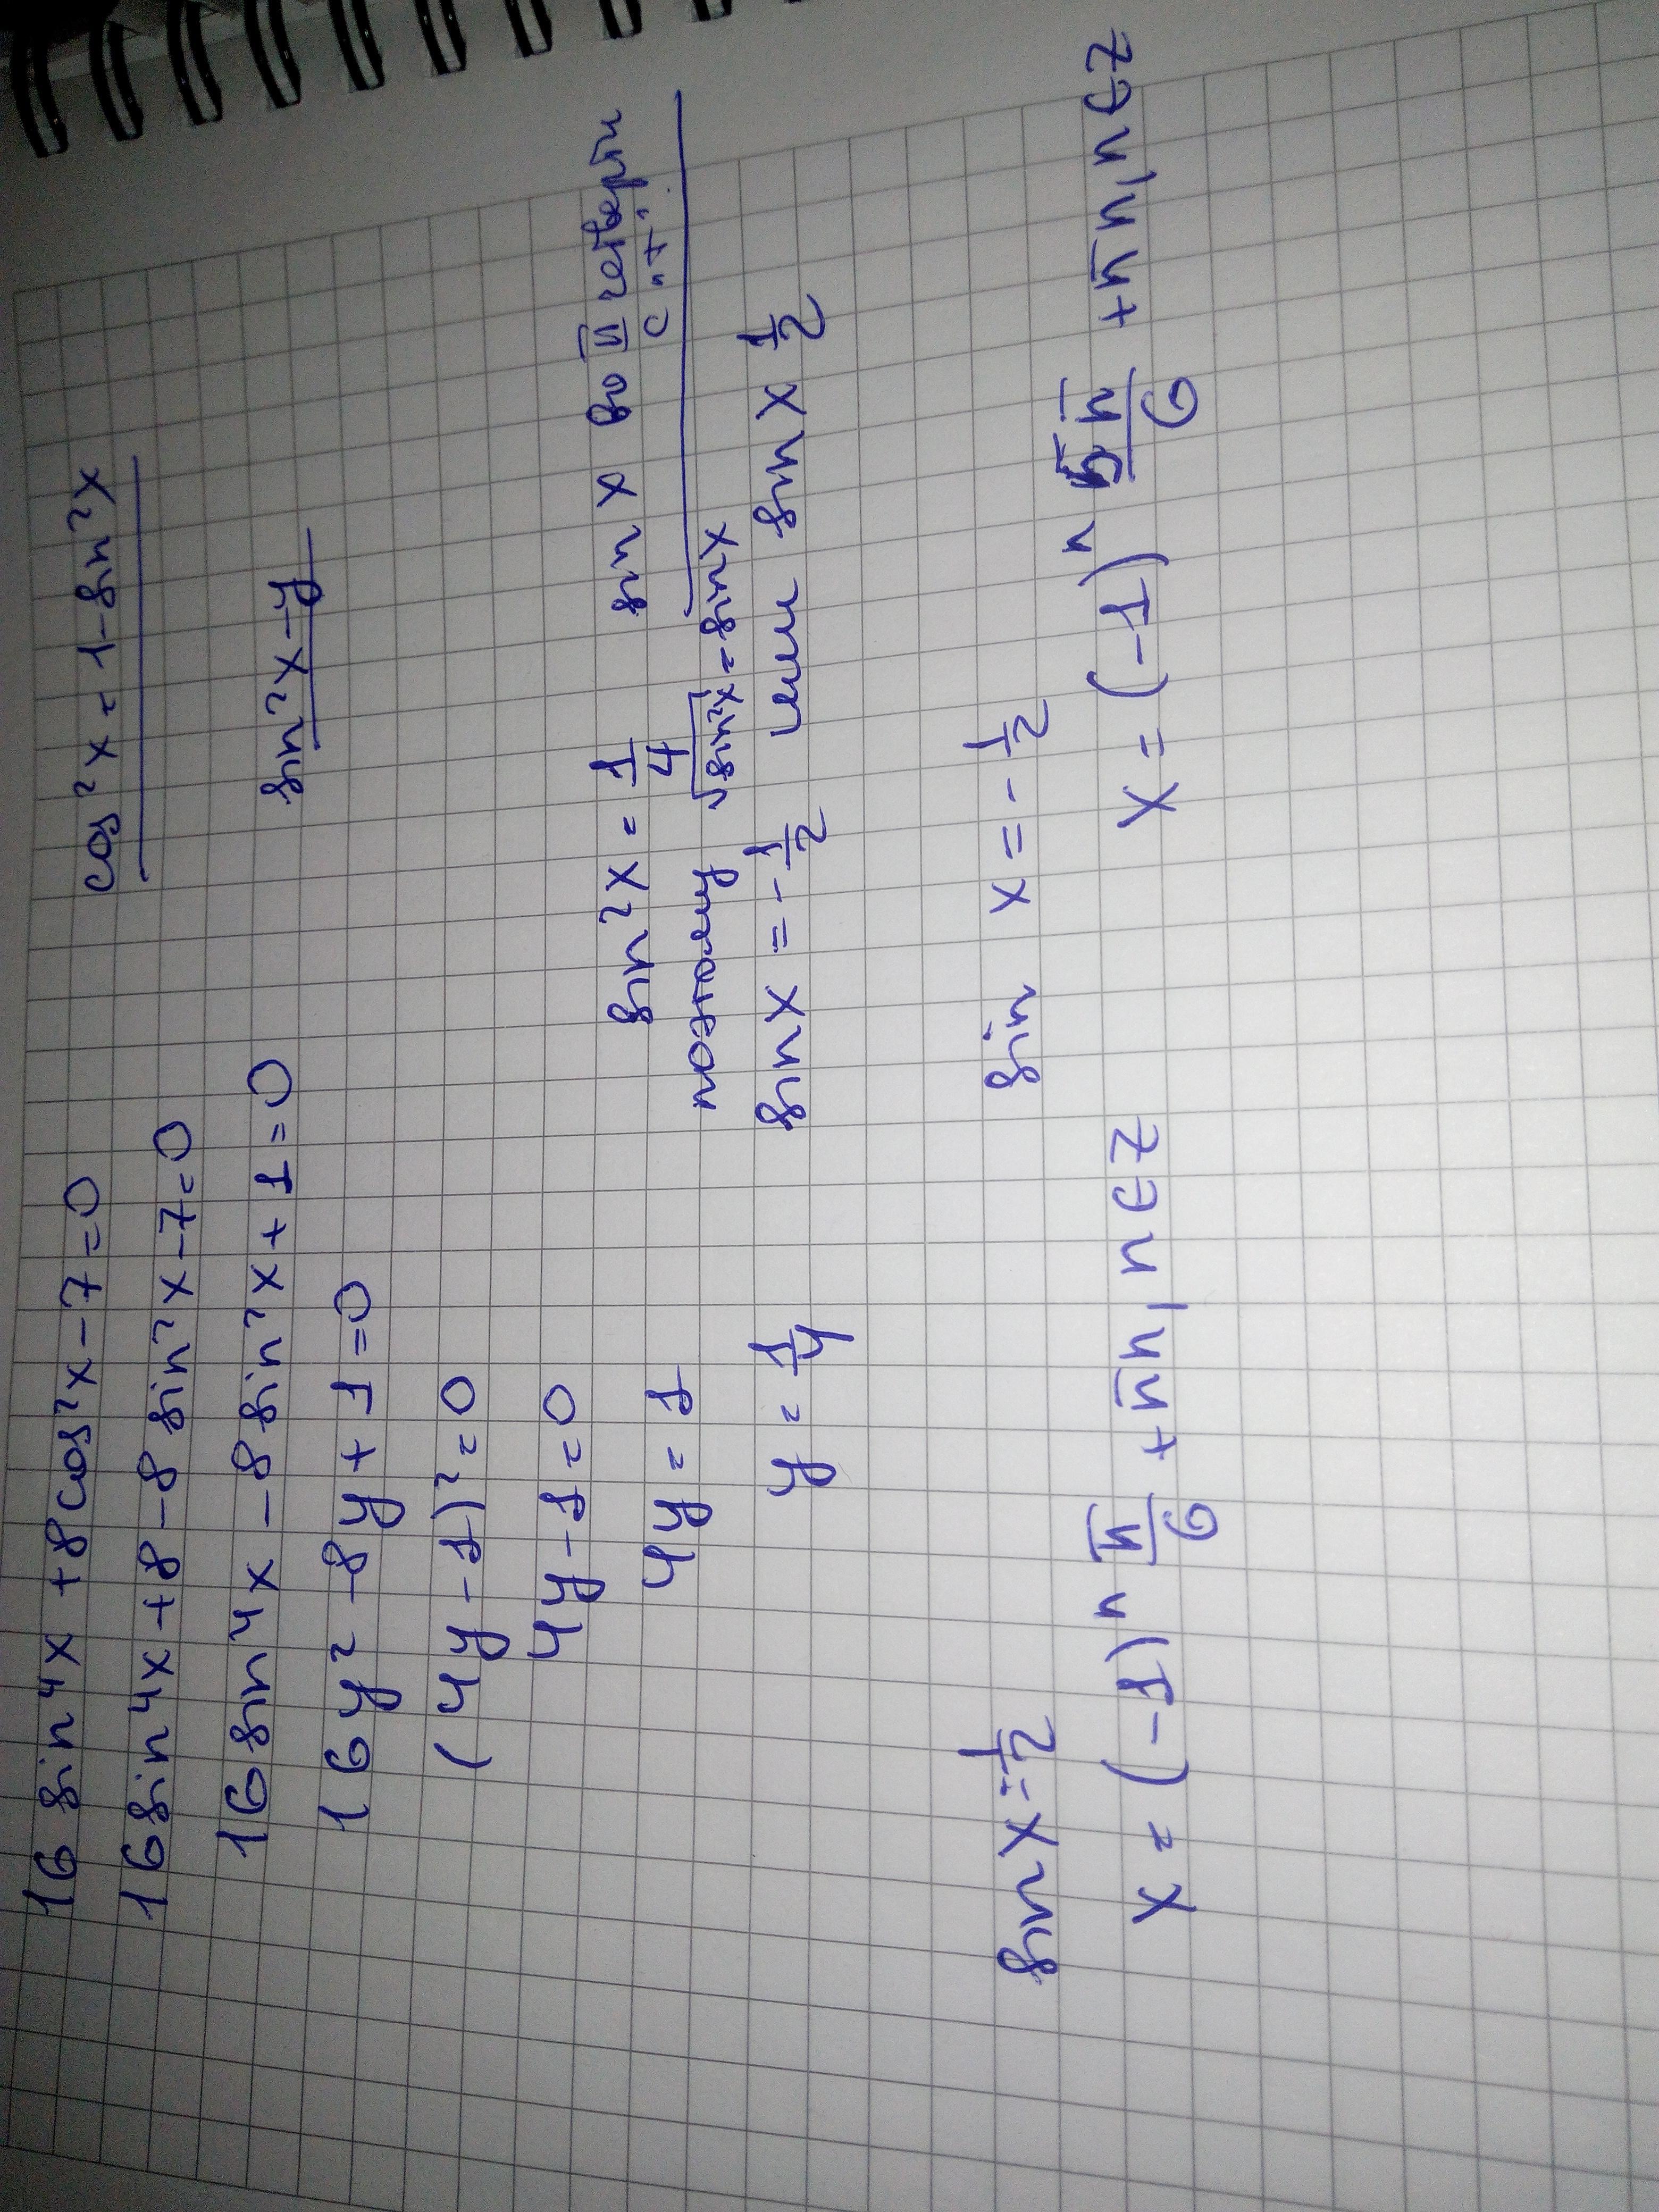 16 sin⁴x + 8cos²x − 7 = 0
cos²x = 1 − sin²x
16 sin⁴x + 8 − 8 sin²x − 7 = 0
16 sin⁴x − 8 sin²x + 1 = 0
sin²x − y
16y² − 8y + 1 = 0
(4y − 1)² = 0
4y − 1 = 0
4y = 1
y = 1/4
sin²x = 1/4
sin x во II четверти
с "+"
поэтому √sin²x = sin x
sin x = − 1/2 или sin x 1/2
sin x = 1/2
x = (−1)ⁿ π/6 + πn, n ∈ Z
sin x = − 1/2
x = (−1)ⁿ 5π/6 + πn, n ∈ Z